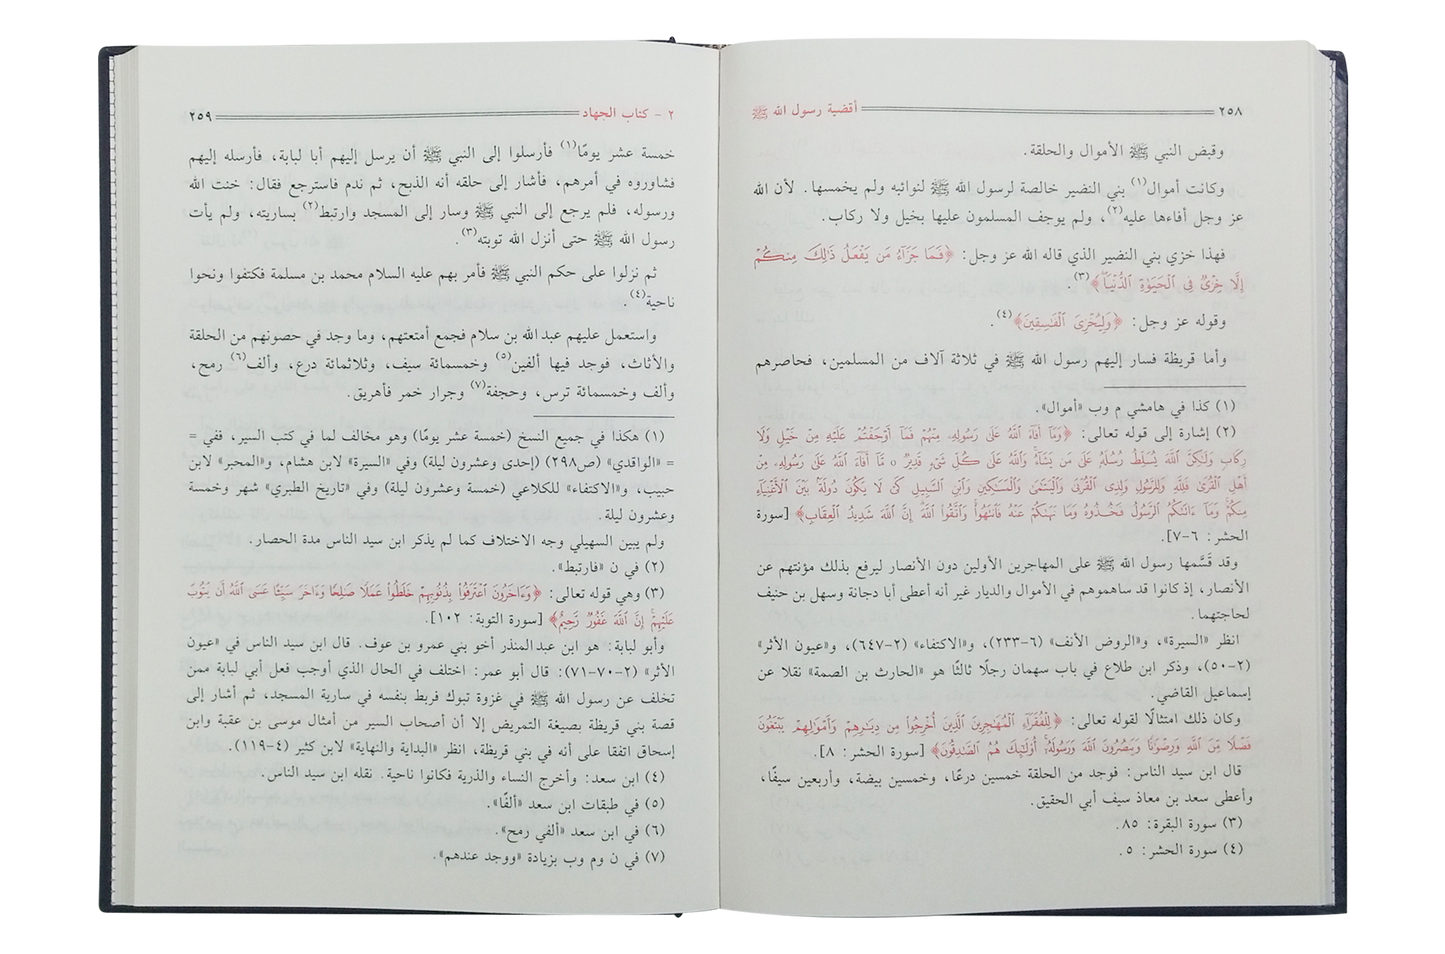 ٢٥٨ أقضية رسول الله ﷺ
وقبض النبي ﷺ الأموال والحلقة.
وكانت أموال(١) بني النضير خالصة لرسول الله ﷺ لنوائبه ولم يخمسها. لأن الله
عز وجل أفاءها عليه(٢)، ولم يوجف المسلمون عليها بخيل ولا ركاب.
فهذا خزي بني النضير الذي قاله الله عز وجل: ﴿فَمَا جَزَآءُ مَن يَفْعَلُ ذَٰلِكَ مِنكُمْ
إِلَّا خِزْىٌ فِى ٱلْحَيَوٰةِ ٱلدُّنْيَا﴾(٣).
وقوله عز وجل: ﴿وَلِيُخْزِىَ ٱلْفَٰسِقِينَ﴾(٤).
وأما قريظة فسار إليهم رسول الله ﷺ في ثلاثة آلاف من المسلمين، فحاصرهم
(١) كذا في هامشي م وب «أموال».
(٢) إشارة إلى قوله تعالى: ﴿وَمَآ أَفَآءَ ٱللَّهُ عَلَىٰ رَسُولِهِۦ مِنْهُمْ فَمَآ أَوْجَفْتُمْ عَلَيْهِ مِنْ خَيْلٍ وَلَا
رِكَابٍ وَلَٰكِنَّ ٱللَّهَ يُسَلِّطُ رُسُلَهُۥ عَلَىٰ مَن يَشَآءُ وَٱللَّهُ عَلَىٰ كُلِّ شَىْءٍ قَدِيرٌ ٥ مَّآ أَفَآءَ ٱللَّهُ عَلَىٰ رَسُولِهِۦ مِنْ
أَهْلِ ٱلْقُرَىٰ فَلِلَّهِ وَلِلرَّسُولِ وَلِذِى ٱلْقُرْبَىٰ وَٱلْيَتَٰمَىٰ وَٱلْمَسَٰكِينِ وَٱبْنِ ٱلسَّبِيلِ كَىْ لَا يَكُونَ دُولَةًۢ بَيْنَ ٱلْأَغْنِيَآءِ
مِنكُمْ وَمَآ ءَاتَىٰكُمُ ٱلرَّسُولُ فَخُذُوهُ وَمَا نَهَىٰكُمْ عَنْهُ فَٱنتَهُوا۟ وَٱتَّقُوا۟ ٱللَّهَ إِنَّ ٱللَّهَ شَدِيدُ ٱلْعِقَابِ﴾ [سورة
الحشر: ٦-٧].
وقد قَسَّمها رسول الله ﷺ على المهاجرين الأولين دون الأنصار ليرفع بذلك مؤنتهم عن
الأنصار، إذ كانوا قد ساهموهم في الأموال والديار غير أنه أعطى أبا دجانة وسهل بن حنيف
لحاجتهما.
انظر «السيرة»، و«الروض الأنف» (٦-٢٣٣)، و«الاكتفاء» (٢-٦٤٧)، و«عيون الأثر»
(٢-٥٠)، وذكر ابن طلاع في باب سهمان رجلًا ثالثًا هو «الحارث بن الصمة» نقلا عن
إسماعيل القاضي.
وكان ذلك امتثالًا لقوله تعالى: ﴿لِلْفُقَرَآءِ ٱلْمُهَٰجِرِينَ ٱلَّذِينَ أُخْرِجُوا۟ مِن دِيَٰرِهِمْ وَأَمْوَٰلِهِمْ يَبْتَغُونَ
فَضْلًا مِّنَ ٱللَّهِ وَرِضْوَٰنًا وَيَنصُرُونَ ٱللَّهَ وَرَسُولَهُۥٓ أُو۟لَٰٓئِكَ هُمُ ٱلصَّٰدِقُونَ﴾ [سورة الحشر: ٨].
قال ابن سيد الناس: فوجد من الحلقة خمسين درعًا، وخمسين بيضة، وأربعين سيفًا،
وأعطى سعد بن معاذ سيف أبي الحقيق.
(٣) سورة البقرة: ٨٥.
(٤) سورة الحشر: ٥.
٢ - كتاب الجهاد ٢٥٩
خمسة عشر يومًا(١) فأرسلوا إلى النبي ﷺ أن يرسل إليهم أبا لبابة، فأرسله إليهم
فشاوروه في أمرهم، فأشار إلى حلقه أنه الذبح، ثم ندم فاسترجع فقال: خنت الله
ورسوله، فلم يرجع إلى النبي ﷺ وسار إلى المسجد وارتبط(٢) بساريته، ولم يأت
رسول الله ﷺ حتى أنزل الله توبته(٣).
ثم نزلوا على حكم النبي ﷺ فأمر بهم عليه السلام محمد بن مسلمة فكتفوا ونحوا
ناحية(٤).
واستعمل عليهم عبد الله بن سلام فجمع أمتعتهم، وما وجد في حصونهم من الحلقة
والأثاث، فوجد فيها ألفين(٥) وخمسمائة سيف، وثلاثمائة درع، وألف(٦) رمح،
وألف وخمسمائة ترس، وحجفة(٧) وجرار خمر فأهريق.
(١) هكذا في جميع النسخ (خمسة عشر يومًا) وهو مخالف لما في كتب السير، ففي =
= «الواقدي» (ص٢٩٨) (إحدى وعشرون ليلة) وفي «السيرة» لابن هشام، و«المحبر» لابن
حبيب، و«الاكتفاء» للكلاعي (خمسة وعشرون ليلة) وفي «تاريخ الطبري» شهر وخمسة
وعشرون ليلة.
ولم يبين السهيلي وجه الاختلاف كما لم يذكر ابن سيد الناس مدة الحصار.
(٢) في ن «فارتبط».
(٣) وهي قوله تعالى: ﴿وَءَاخَرُونَ ٱعْتَرَفُوا۟ بِذُنُوبِهِمْ خَلَطُوا۟ عَمَلًا صَٰلِحًا وَءَاخَرَ سَيِّئًا عَسَى ٱللَّهُ أَن يَتُوبَ
عَلَيْهِمْ إِنَّ ٱللَّهَ غَفُورٌ رَّحِيمٌ﴾ [سورة التوبة: ١٠٢].
وأبو لبابة: هو ابن عبد المنذر أخو بني عمرو بن عوف. قال ابن سيد الناس في «عيون
الأثر» (٢-٧٠-٧١): قال أبو عمر: اختلف في الحال الذي أوجب فعل أبي لبابة ممن
تخلف عن رسول الله ﷺ في غزوة تبوك فربط بنفسه في سارية المسجد، ثم أشار إلى
قصة بني قريظة بصيغة التمريض إلا أن أصحاب السير من أمثال موسى بن عقبة وابن
إسحاق اتفقا على أنه في بني قريظة، انظر «البداية والنهاية» لابن كثير (٤-١١٩).
(٤) ابن سعد: وأخرج النساء والذرية فكانوا ناحية. نقله ابن سيد الناس.
(٥) في طبقات ابن سعد «ألفًا».
(٦) في ابن سعد «ألفي رمح».
(٧) في ن وم وب بزيادة «ووجد عندهم».